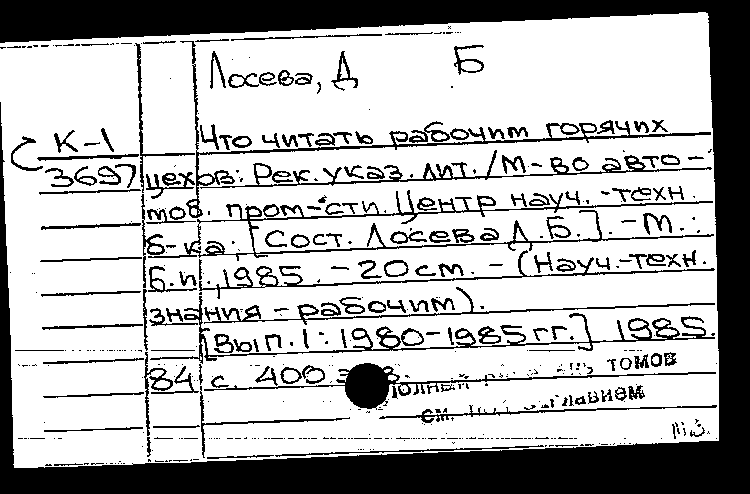 Лосева, Д Б
К-1
3697
Что читать рабочим горячих
цехов: Рек. указ. лит. / М-во авто-
моб. пром-сти. Центр науч.-техн.
б-ка; [Сост. Лосева Д.Б.]. - М.:
Б.и., 1985. - 20 см. - (Науч.-техн.
знания - рабочим).
[Вып. 1: 1980-1985 гг.] 1985.
84 с. 400
томов
см.